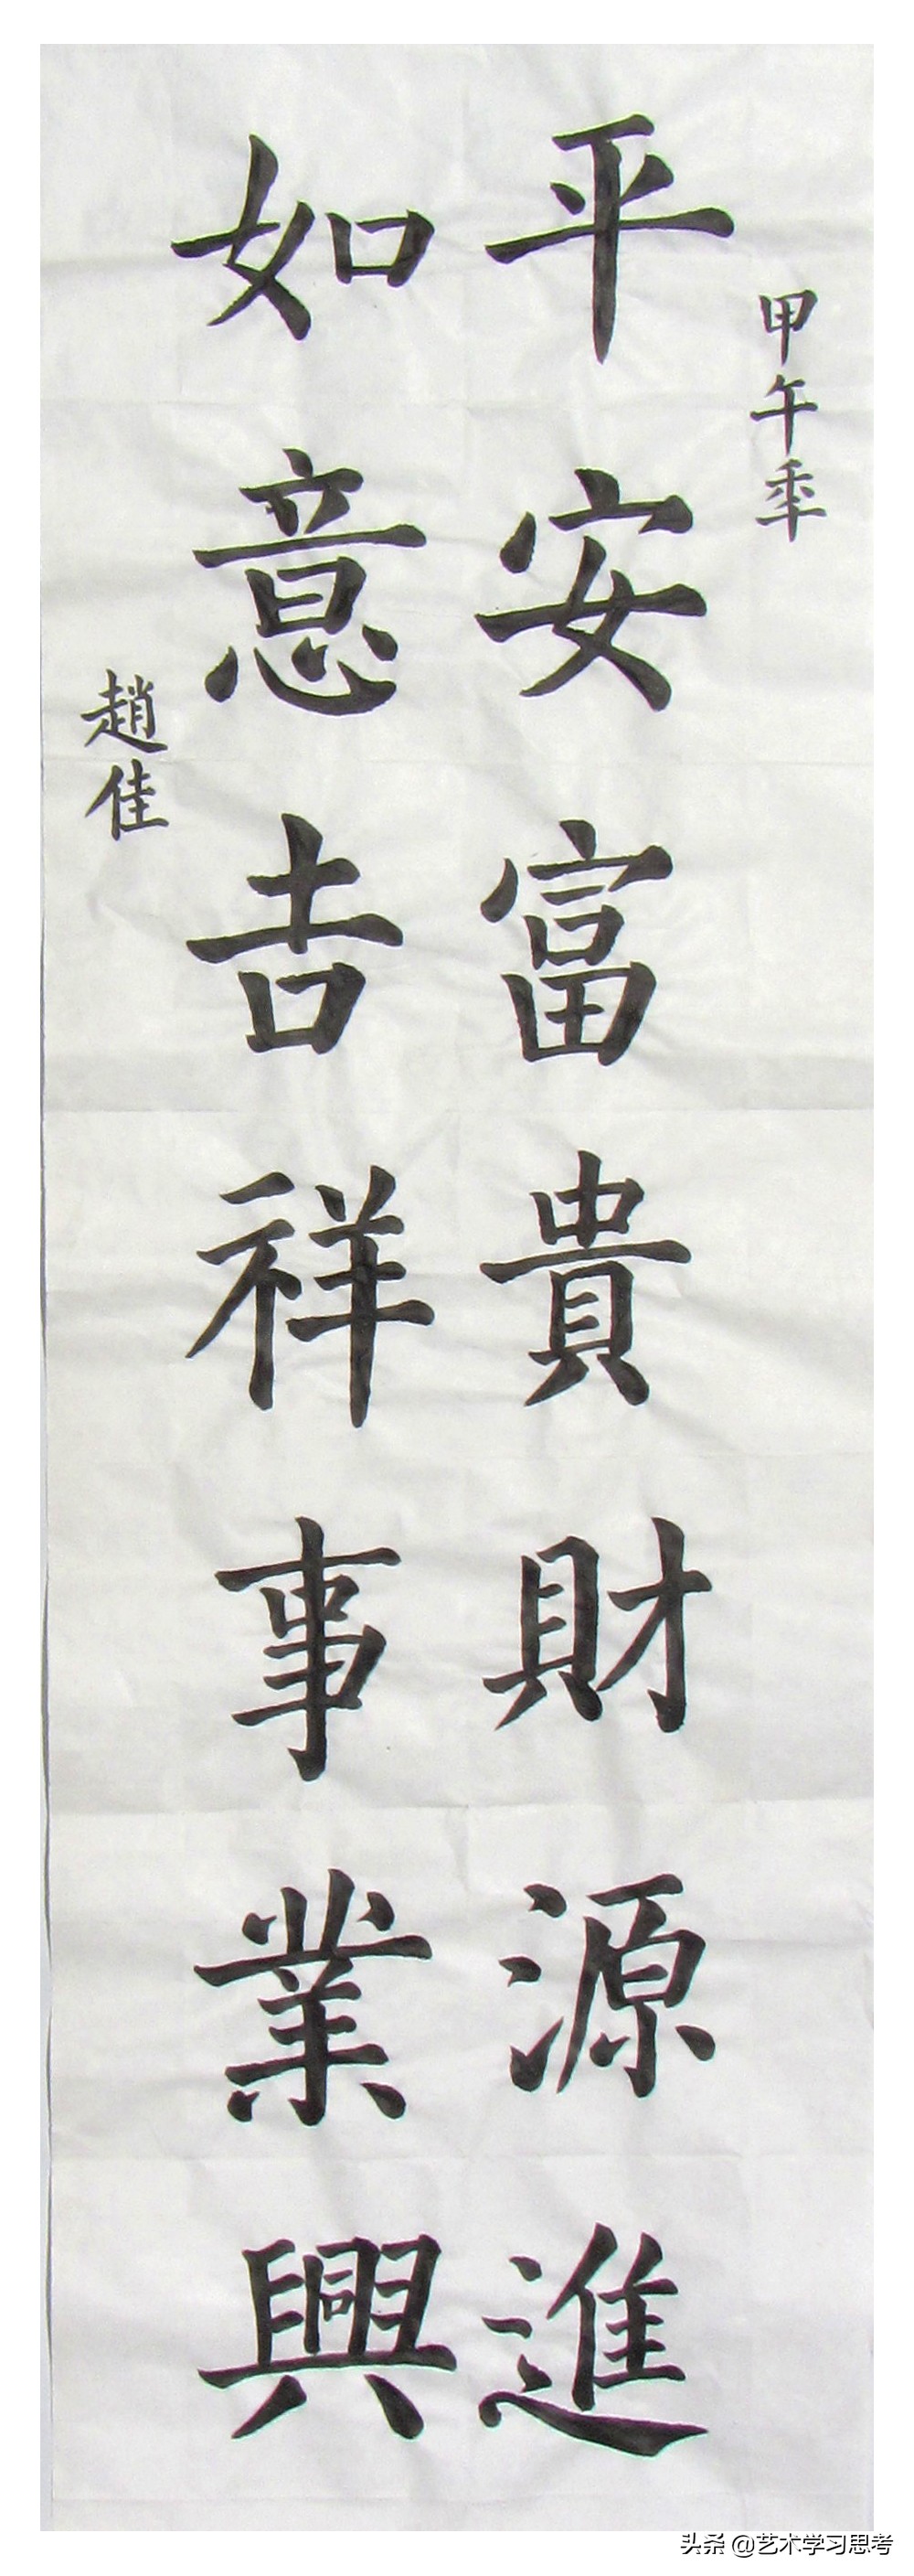 甲午年
平安富貴財源進
如意吉祥事業興
趙佳
头条 @艺术学习思考